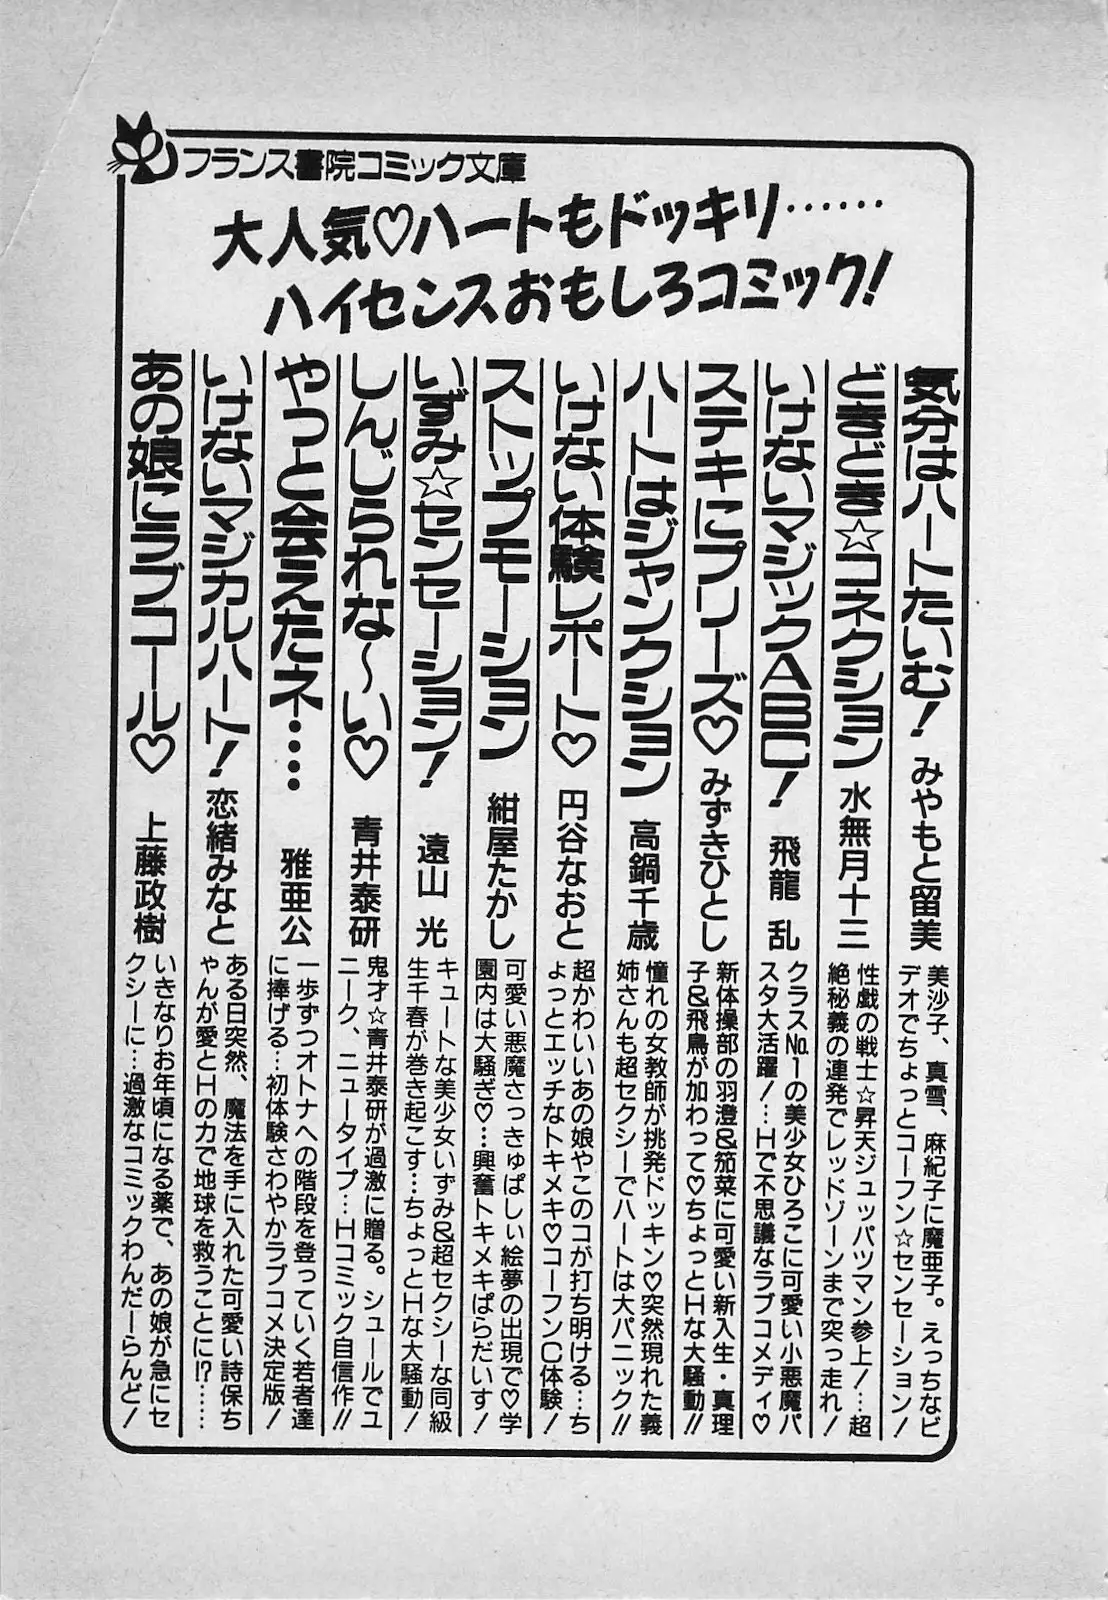 フランス書院コミック文庫
大人気♡ハートもドッキリ……
ハイセンスおもしろコミック!
気分はハートたいむ! みやもと留美
美沙子、真雪、麻紀子に魔亜子。えっちなビ
デオでちょっとコーフン☆センセーション!
どきどき☆コネクション 水無月十三
性戯の戦士☆昇天ジュッパツマン参上!…超
絶秘義の連発でレッドゾーンまで突っ走れ!
いけないマジックABC! 飛龍 乱
クラスNo.1の美少女ひろこに可愛い小悪魔パ
スタ大活躍!…Hで不思議なラブコメディ♡
ステキにプリーズ♡ みずきひとし
新体操部の羽澄&茄菜に可愛い新入生・真理
子&飛鳥が加わって♡ちょっとHな大騒動!!
ハートはジャンクション 高鍋千歳
憧れの女教師が挑発ドッキン♡突然現れた義
姉さんも超セクシーでハートは大パニック!!
いけない体験レポート♡ 円谷なおと
超かわいいあの娘やこのコが打ち明ける…ち
ょっとエッチなトキメキ♡コーフンC体験!
ストップモーション 紺屋たかし
可愛い悪魔さっきゅばしい絵夢の出現で♡学
園内は大騒ぎ♡…興奮トキメキぱらだいす!
いずみ☆センセーション! 遠山 光
キュートな美少女いずみ&超セクシーな同級
生千春が巻き起こす…ちょっとHな大騒動!
しんじられな〜い♡ 青井泰研
鬼才☆青井泰研が過激に贈る。シュールでユ
ニーク、ニュータイプ…Hコミック自信作!!
やっと会えたネ…… 雅亜公
一歩ずつオトナへの階段を登っていく若者達
に捧げる…初体験さわやかラブコメ決定版!
いけないマジカルハート! 恋緒みなと
ある日突然、魔法を手に入れた可愛い詩保ち
ゃんが愛とHの力で地球を救うことに!?……
あの娘にラブコール♡ 上藤政樹
いきなりお年頃になる薬で、あの娘が急にセ
クシーに…過激なコミックわんだーらんど!